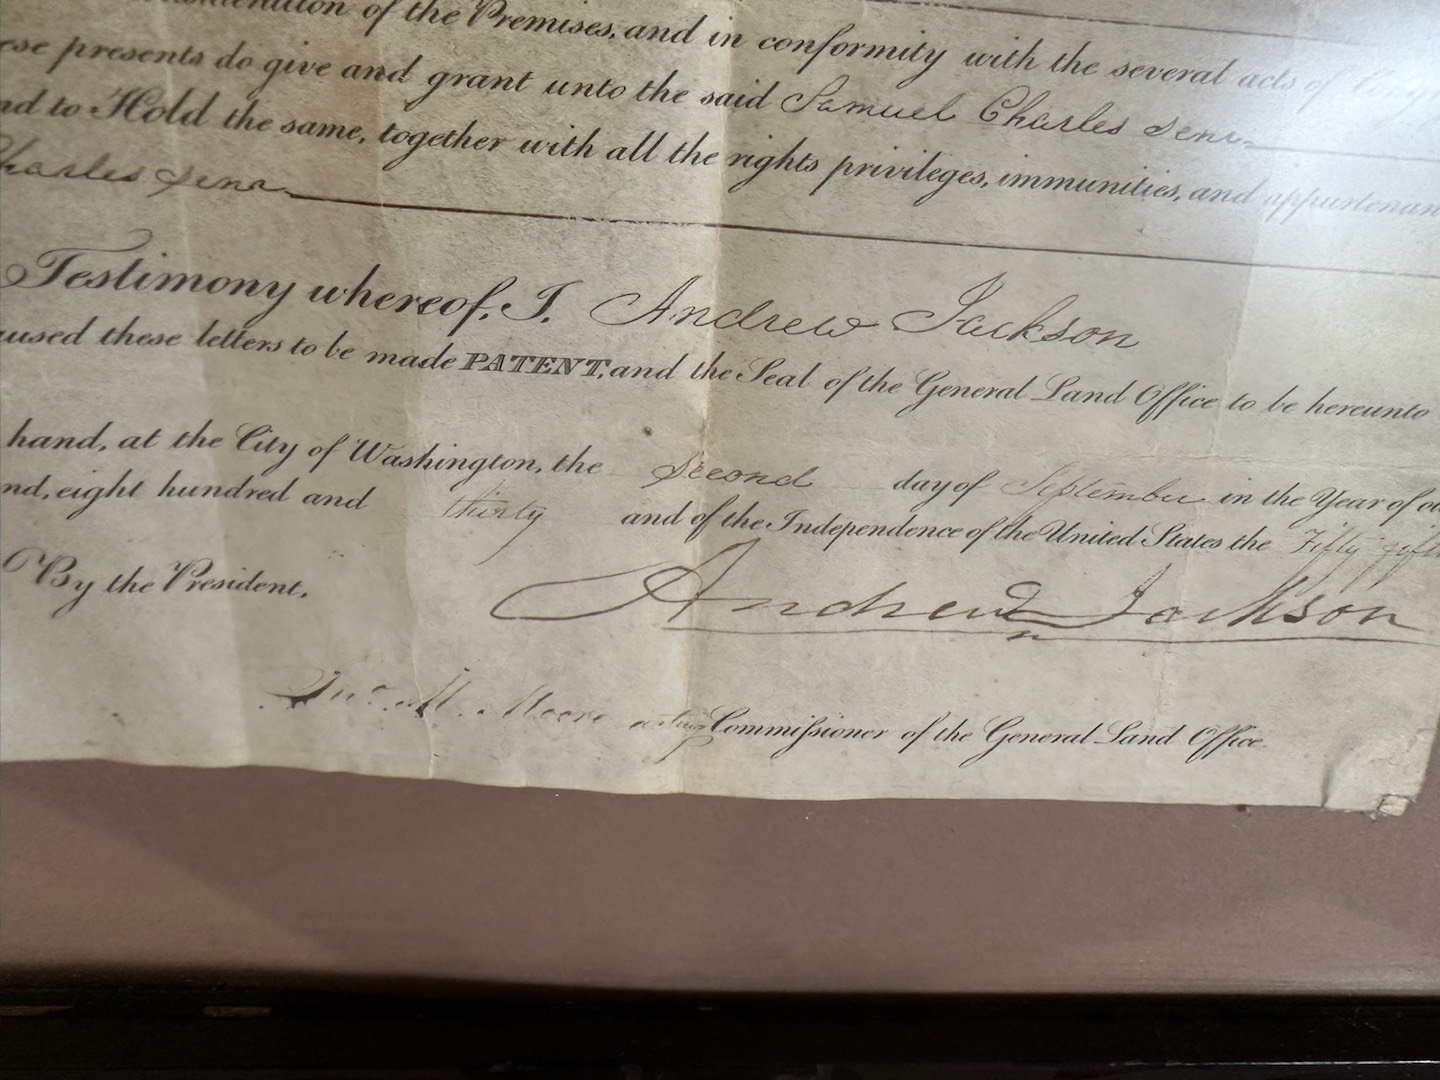 of the Premises, and in conformity with the several acts of
these presents do give and grant unto the said Samuel Charles Senr.
and to Hold the same, together with all the rights privileges, immunities, and appurtenan
Charles Senr.
Testimony whereof, I, Andrew Jackson
aused these letters to be made PATENT, and the Seal of the General Land Office to be hereunto
hand, at the City of Washington, the second day of September in the Year of ou
nd, eight hundred and thirty and of the Independence of the United States the Fifty fifth
By the President, Andrew Jackson
Jno. M. Moore acting Commissioner of the General Land Office.